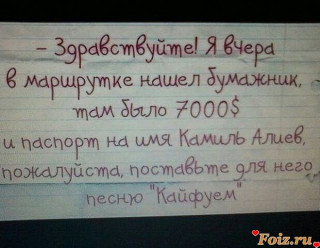 - Здравствуйте! Я вчера
в маршрутке нашел бумажник,
там было 7000$
и паспорт на имя Камиль Алиев,
пожалуйста, поставьте для него
песню "Кайфуем"
Foiz.ru